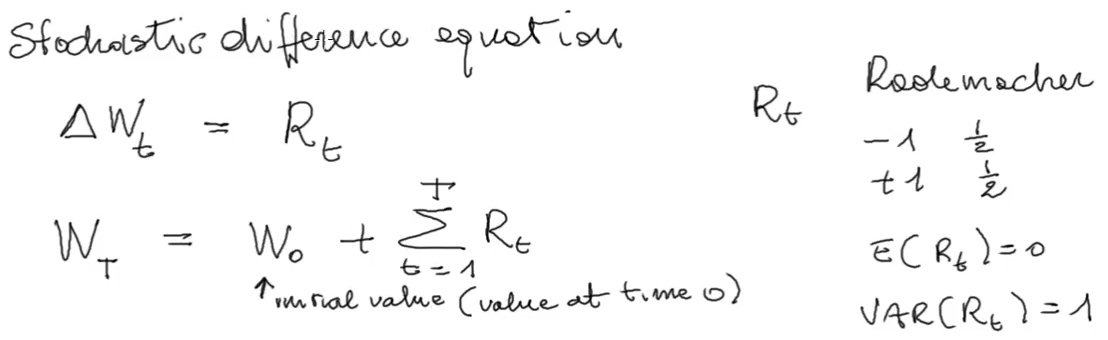 Stochastic difference equation
ΔW_t = R_t
W_T = W_0 + ∑_{t=1}^{T} R_t
↑ initial value (value at time 0)
R_t Rademacher
-1 1/2
+1 1/2
E(R_t)=0
VAR(R_t)=1